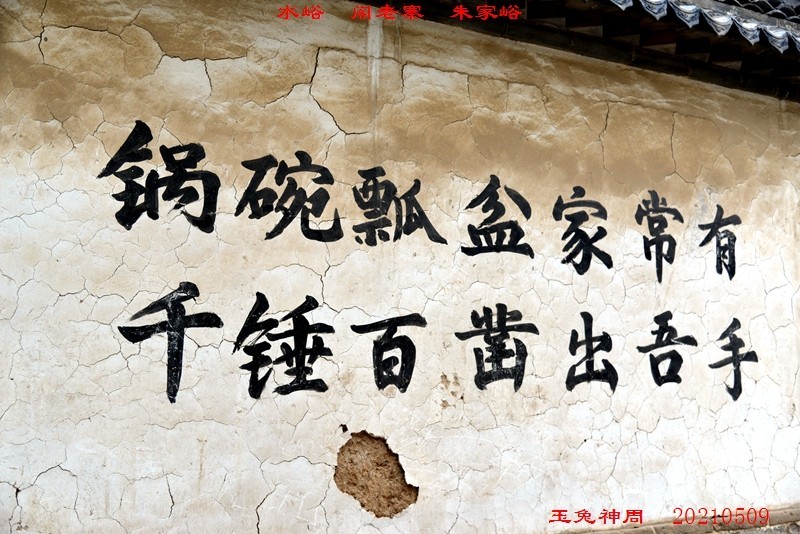 水峪 阎老寨 朱家峪
锅碗瓢盆家常有
千锤百凿出吾手
玉兔神周 20210509